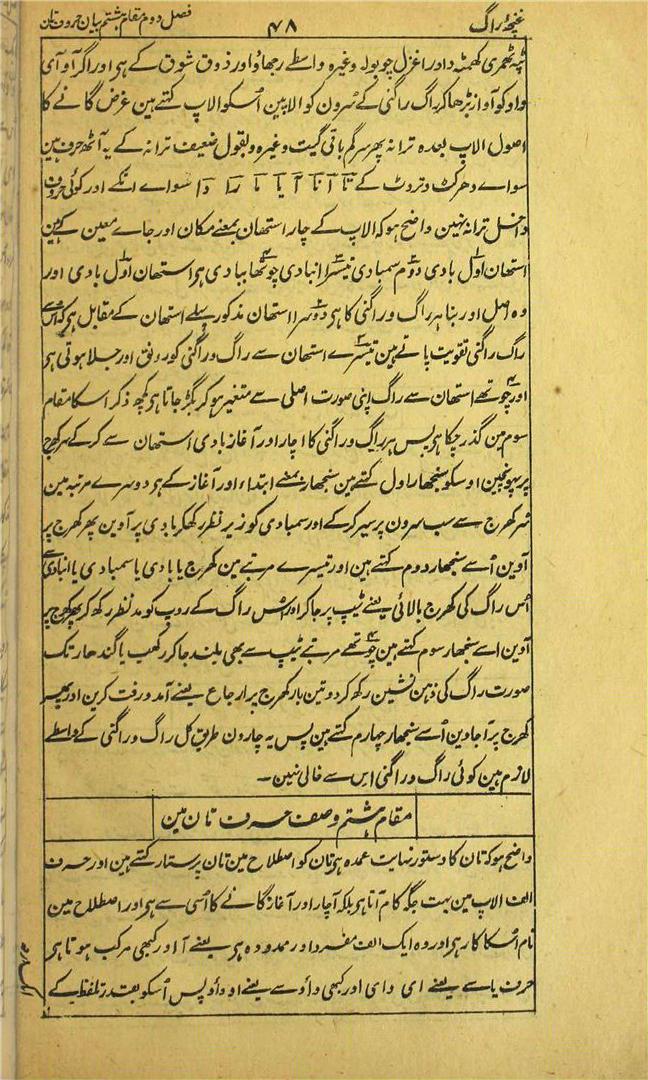 غنچۂ راگ
۴۸
فصل دوم مقام ہشتم بیان حروف تان
ٹپہ ٹھمری کھمٹہ دادرا غزل چوبولہ وغیرہ واسطے رجھاؤ اور ذوق شوق کے ہی اور اگر آو آی
واو کو آواز بڑھا کر راگ راگنی کے سُرون کو الاپین اُسکو الاپ کہتے ہین غرض گانے کا
اصول الاپ بعدہ ترانہ پھر سرگم باقی گیت وغیرہ و بقول ضعیف ترانہ کے یہ آٹھ حرف ہین
سواے دھرکٹ و تروٹ کے تا آ نا آ یا نا را دا سواے انکے اور کوئی حروف
داخل ترانہ نہین واضح ہو کہ الاپ کے چار استھان بمعنے مکان اور جاے معین کے ہین
استھان اول بادی دوم سمبادی تیسرا انبادی چوتھا ببادی ہر استھان اول بادی اور
وہ اصل اور بنا ہر راگ و راگنی کا ہر دوسرا استھان مذکور پہلے استھان کے مقابل ہر کہ اس سے
راگ راگنی تقویت پاتے ہین تیسرے استھان سے راگ و راگنی کو رونق اور جلا ہوتی ہر
اور چوتھے استھان سے راگ اپنی صورت اصلی سے متغیر ہو کر بگڑ جاتا ہر کچھ ذکر اسکا مقام
سوم مین گذر چکا ہر پس ہر راگ و راگنی کا اچار اور آغاز بادی استھان سے کر کے کھرج
پر پہونچین اوسکو سنجھار اول کہتے ہین سنجھار بمعنے ابتداء اور آغاز کے ہر دوسرے مرتبہ مین
سُر کھرج سے سب سرون پر سیر کر کے اور سمبادی کو زیر نظر رکھکر بادی پر آوین پھر کھرج پر
آوین اُسے سنجھار دوم کہتے ہین اور تیسرے مرتبے مین کھرج یا بادی یا سمبادی یا انبادی سے
اُس راگ کی کھرج بالائی یعنے ٹیپ پر جا کر اور اس راگ کے روپ کو مدنظر رکھ کر پھر کھرج پر
آوین اسے سنجھار سوم کہتے ہین چوتھے مرتبے ٹیپ سے بھی بلند جا کر رکھب یا گندھار تک
صورت راگ کی ذہن نشین رکھ کر دو تین بار کھرج پر ارجاع یعنے آمد و رفت کرین اور پھر
کھرج پر آجاوین اُسے سنجھار چہارم کہتے ہین پس یہ چارون طریق کل راگ و راگنی کے واسطے
لازم ہین کوئی راگ و راگنی اس سے خالی نہین۔
مقام ہشتم وصف حرف تان مین
واضح ہو کہ تان کا دستور نہایت عمدہ ہر تان کو اصطلاح مین تان پرستار کہتے ہین اور حرف
الف الاپ مین بہت جگہ کام آتا ہر بلکہ آچار اور آغاز گانے کا اُسی سے ہر اور اصطلاح مین
نام اُسکا کار ہر اور وہ ایک الف مفرد اور ممدودہ ہر یعنے آ اور کبھی مرکب ہوتا ہر
حرف یا سے یعنے ای وای اور کبھی واؤ سے یعنے او واؤ پس اُسکو بقدر تلفظ کے